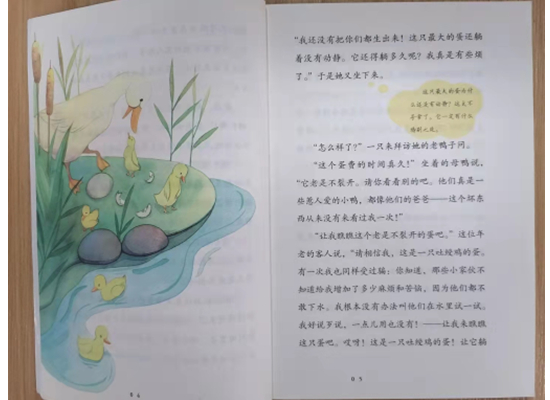 “我还没有把你们都生出来！这只最大的蛋还躺
着没有动静。它还得躺多久呢？我真是有些烦
了。”于是她又坐下来。
这只最大的蛋为什
么还没有动静？这太不
寻常了，它一定有什么
“怎么样了？”一只来拜访她的老鸭子问。
“这个蛋费的时间真久！”坐着的母鸭说，
“它老是不裂开。请你看看别的吧。他们真是一
些惹人爱的小鸭，都像他们的爸爸——这个坏东
西从来没有来看过我一次！”
“让我瞧瞧这个老是不裂开的蛋吧。”这位年
老的客人说，“请相信我，这是一只吐绶鸡的蛋。
有一次我也同样受过骗：你知道，那些小家伙不
知道给我增加了多少麻烦和苦恼，因为他们都不
敢下水。我根本没有办法叫他们在水里试一试。
我好说歹说，一点儿用也没有！——让我来瞧瞧
这只蛋吧。哎呀！这是一只吐绶鸡的蛋！让它躺